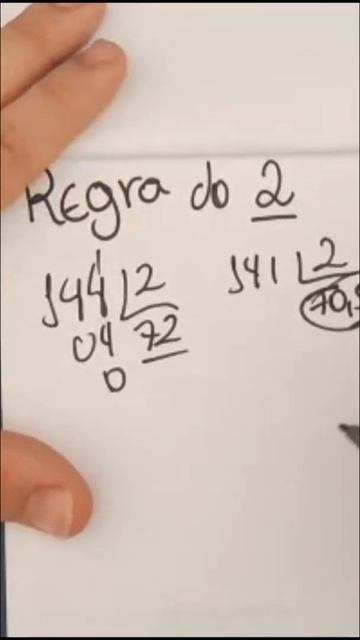 Regra do 2
144 2 141 2
04 72 70,5
0